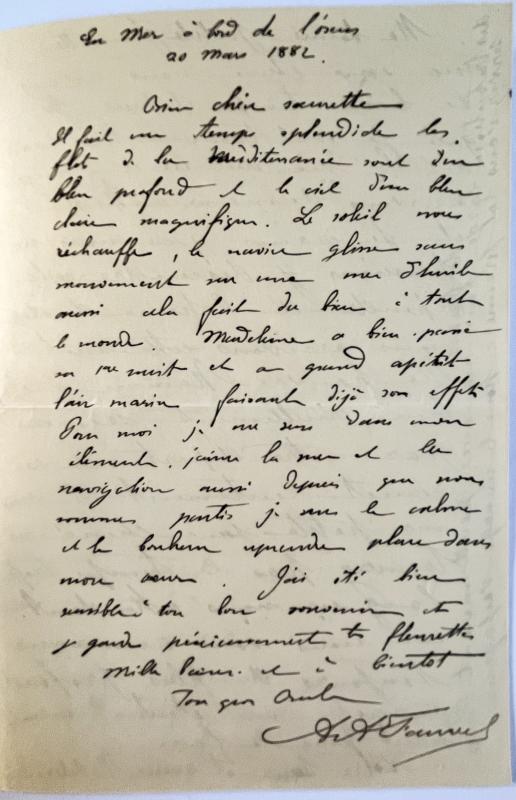 En Mer à bord de l'
20 mars 1882.
chère sœurette
Il fait un temps splendide les
flot de la mediteranée sont d'un
bleu profond et le ciel d'un bleu
claire magnifique. Le soleil nous
réchauffe, le navire glisse sans
mouvement sur une mer d'huile
aussi cela fait du bien à tout
le monde. Madeleine a bien passé
sa 1ere nuit et a grand apétit
l'air marin faisant déjà son effet
Pour moi je me sens dans mon
élément. j'aime la mer et la
navigation aussi depuis que nous
sommes partis je sens le calme
et le bonheur reprendre place dans
mon cœur. J'ai été bien
sensible à ton bon souvenir et
je garde précieusement tes fleurettes
Mille baisers et à bientot
Ton gros